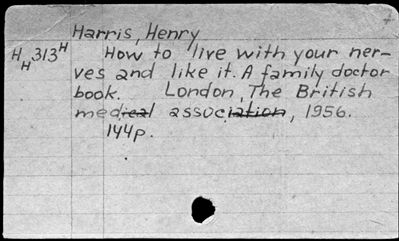 Harris, Henry
HH313H How to live with your ner-
ves and like it. A family doctor
book. London, The British
medical association, 1956.
144p.